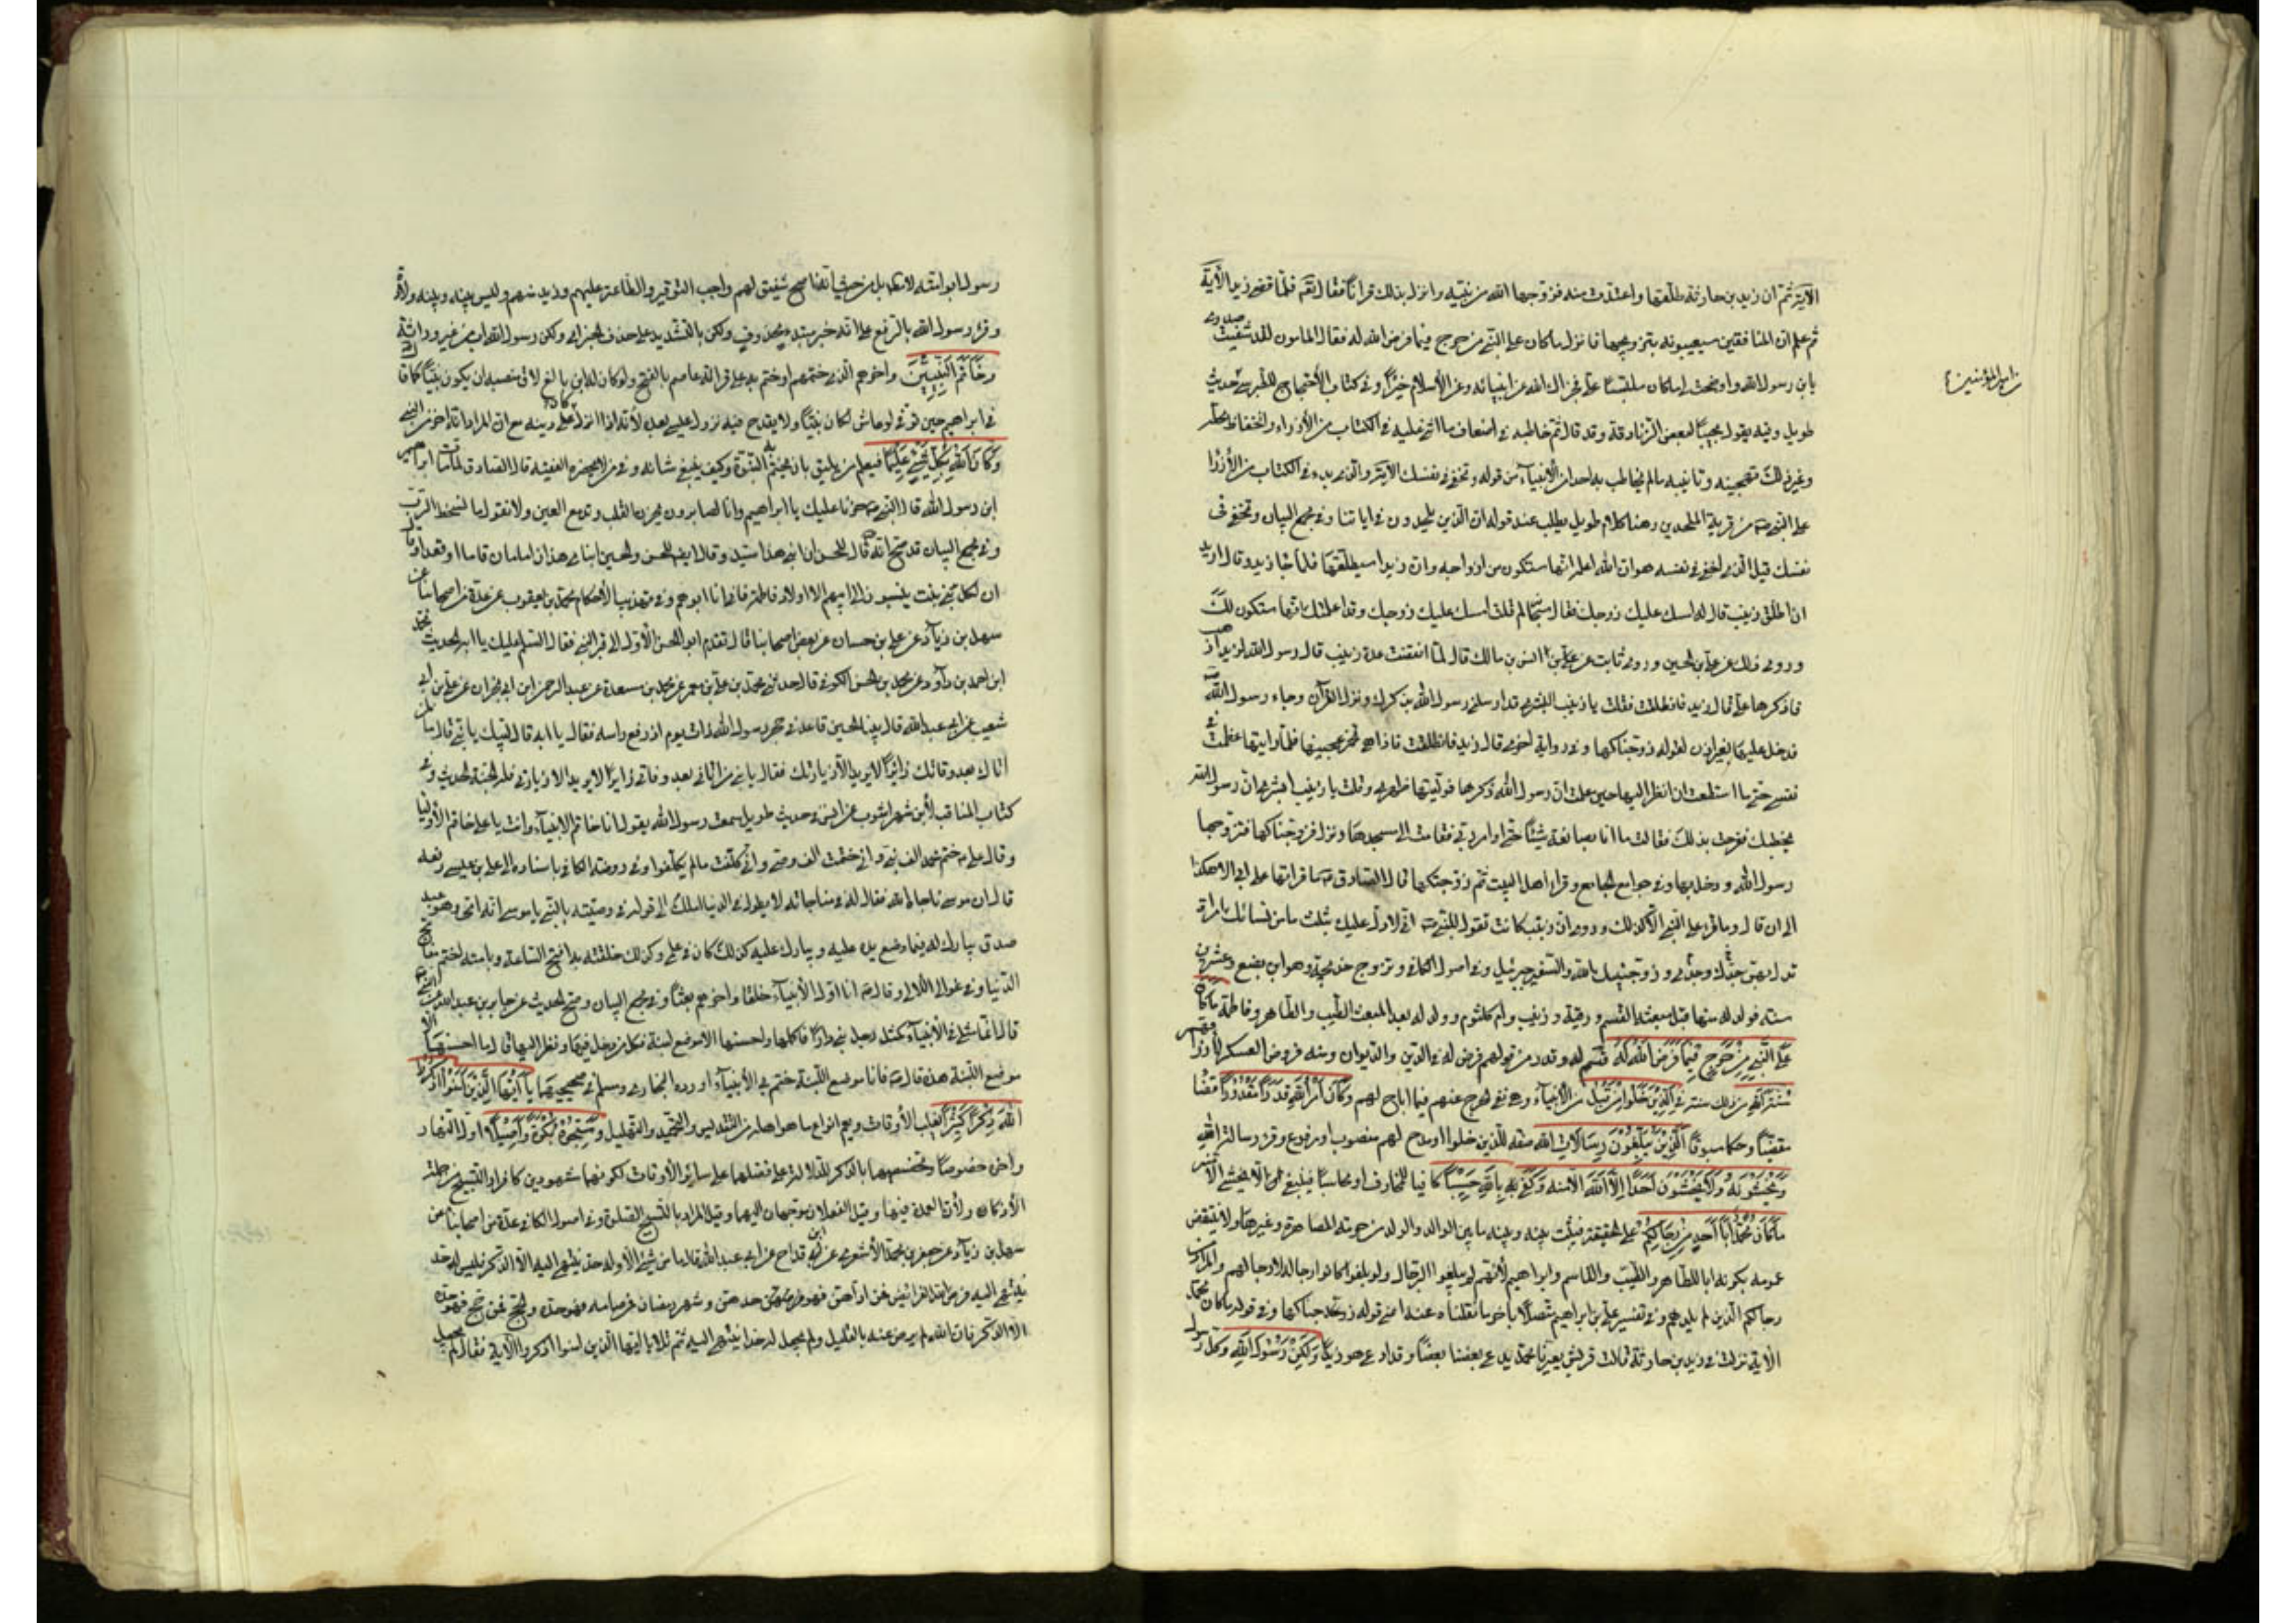 الآية ثم ان زيد بن حارثة طلقها واعتدت منه فزوجها الله من نبيه وانزل بذلك قرانا فقال الله فلما قضى زيد الآية
ثم علم ان المنافقين سيعيبونه بتزويجها فانزل ما كان على النبي من حرج فيما فرض الله له فقال المأمون لقد شفيت صدري
يا بن رسول الله واوضحت لي ما كان ملتبسا علي فجزاك الله عن انبيائه وعن الاسلام خيرا وفي كتاب الاحتجاج للطبرسي حديث
من امير المؤمنين ع
طويل وفيه يقول مجيبا لبعض الزنادقة وقد قال ثم خاطبه في اضعاف ما اثنى عليه في الكتاب من الازراء وانخفاض محله
وغير ذلك من تهجينه وتأنيبه ما لم يخاطب به احدا من الانبياء من قوله وتخفي في نفسك الآية والذي بدء في الكتاب من الازرا
على النبي من فرية الملحدين وهنا كلام طويل يطلب عند قوله ان الذين يلحدون في اياتنا وفي مجمع البيان وتخفي في
نفسك قيل الذي اخفى في نفسه هو ان الله اعلمه انها ستكون من ازواجه وان زيدا سيطلقها فلما جاء زيد وقال اريد
ان اطلق زينب قال له امسك عليك زوجك فقال سبحانه لم قلت امسك عليك زوجك وقد اعلمتك انها ستكون لك
وروى ذلك عن علي بن الحسين وروى ثابت عن انس بن مالك قال لما انقضت عدة زينب قال رسول الله لزيد اذهب
فاذكرها علي قال زيد فانطلقت فقلت يا زينب ابشري قد ارسلني رسول الله بذكرك ونزل القرآن وجاء رسول الله
فدخل عليها بغير اذن لقوله زوجناكها وفي رواية اخرى قال زيد فانطلقت فاذا هي تخمر عجينها فلما رايتها عظمت في
نفسي حتى ما استطعت ان انظر اليها حين علمت ان رسول الله ذكرها فوليتها ظهري وقلت يا زينب ابشري ان رسول الله
يخطبك ففرحت بذلك فقالت ما انا بصانعة شيئا حتى اوامر ربي فقامت الى مسجدها ونزل زوجناكها فتزوجها
رسول الله ودخل بها وفي جوامع الجامع وقراءة اهل البيت ثم زوجتكها قال الصادق ما قراتها على ابي الا هكذا
الى ان قال وما قرأ على النبي الا كذلك وروى ان زينب كانت تقول للنبي اني لادل عليك بثلث ما من نسائك امراة
تدل بهن جدي وجدك وزوجنيك الله والسفير جبرئيل وفي اصول الكافي وتزوج خديجة وهو ابن بضع وعشرين
سنة فولد له منها قبل مبعثه القسم ورقية وزينب وام كلثوم وولد له بعد المبعث الطيب والطاهر وفاطمة ما كان
على النبي من حرج فيما فرض الله له قسم له وقدر من قولهم فرض له في الدين والديوان ومنه فروض العسكر لارزاقهم
سنة الله من ذلك سنة في الذين خلوا من قبل من الانبياء وهي نفي الحرج عنهم فيما اباح لهم وكان امر الله قدرا مقدورا قضاء
مقضيا وحكما مبتوتا الذين يبلغون رسالات الله صفة للذين خلوا او مدح لهم منصوب او مرفوع وقرء رسالة الله
ويخشونه ولا يخشون احدا الا الله الآمنة وكفى بالله حسيبا كافيا للمخاوف او محاسبا فينبغي ان لا يخشى الا منه
ما كان محمد ابا احد من رجالكم على الحقيقة فيثبت بينه وبينه ما بين الوالد والولد من حرمة المصاهرة وغيرها ولا ينتقض
عمومه بكونه ابا للطاهر والطيب والقاسم وابراهيم لانهم لم يبلغوا الرجال ولو بلغوا كانوا رجاله لا رجالهم والمراد من
رجالكم الذين لم يلدهم وفي تفسير علي بن ابراهيم متصلا باخر ما نقلنا عنه اعني قوله زوجناكها وفي قوله ما كان محمد
الآية نزلت في زيد بن حارثة قالت قريش يعيرنا محمد يدعي بعضنا بعضا وقد ادعى هو زيدا ولكن رسول الله وكل رسول
رسول ابو امته لا مطلقا بل من حيث انه ناصح شفيق لهم واجب التوقير والطاعة عليهم وزيد منهم وليس بينه وبينه ولادة
وقرء رسول الله بالرفع على انه خبر مبتدء محذوف ولكن بالتشديد على حذف الخبر اي ولكن رسول الله اب من غير وراثة
وخاتم النبيين واخرهم الذي ختمهم او ختم به على قراءة عاصم بالفتح ولو كان له ابن بالغ لاق بمنصبه ان يكون نبيا كما قال
في ابراهيم حين توفي لو عاش لكان نبيا ولا يقدح فيه نزول عيسى بعده لانه اذا نزل كان على دينه مع ان المراد انه اخر من نبئ
وكان الله بكل شيء عليما فيعلم من يليق بان يختم به النبوة وكيف ينبغي شانه وفي من لا يحضره الفقيه قال الصادق لما مات ابراهيم
ابن رسول الله قال النبي حزنا عليك يا ابراهيم وانا لصابرون يحزن القلب وتدمع العين ولا نقول ما يسخط الرب
وفي مجمع البيان قد صح انه قال للحسن ان ابني هذا سيد وقال ايضا للحسن والحسين ابناي هذان امامان قاما او قعدا وقال
ان لكل بني بنت ينسبون الى ابيهم الا اولاد فاطمة فاني انا ابوهم وفي تهذيب الأحكام محمد بن يعقوب عن عدة من اصحابنا عن
سهل بن زياد عن علي بن حسان عن بعض اصحابنا قال تقدم ابو الحسن الأول الى قبر النبي فقال السلم عليك يا ابه الحديث محمد
ابن احمد بن داود عن محمد بن الحسن الكوفي قال حدثني محمد بن علي بن معمر عن محمد بن مسعدة عن عبد الرحمن ابن ابي نجران عن علي بن ابي
شعيب عن ابي عبد الله قال بينا الحسين قاعد في حجر رسول الله ذات يوم اذ رفع راسه فقال يا ابه قال لبيك يا بني قال ما لمن
اتاك بعد وفاتك زائرا لا يريد الا زيارتك فقال يا بني من اتاني بعد وفاتي زائرا لا يريد الا زيارتي فله الجنة الحديث وفي
كتاب المناقب لأبن شهر اشوب عن انس في حديث طويل سمعت رسول الله يقول انا خاتم الانبياء وانت يا علي خاتم الاوليا
وقال علي ختم محمد الف نبي واني ختمت الف وصي واني كلفت ما لم يكلفوا وفي روضة الكافي باسناده الى علي بن عيسى رفعه
قال ان موسى ناجاه الله فقال له في مناجاته لا يطول في الدنيا املك الى قوله في وصيته بالنبي يا موسى انه امي وهو عبد
صدق يبارك له فيما وضع يده عليه ويبارك عليه كذلك كان في علمي وكذلك خلقته به افتح الساعة وبامته اختم مفاتيح
الدنيا وفي غوالي اللالي وقال انا اول الأنبياء خلقا واخرهم بعثا وفي مجمع البيان وصح الحديث عن جابر بن عبد الله عن النبي
قال انما مثلي في الأنبياء كمثل رجل بنى دارا فاكملها وحسنها الا موضع لبنة فكل من دخل فيها ونظر اليها قال ما احسنها الا
موضع اللبنة هذه قال فانا موضع اللبنة ختم بي الأنبياء اورده البخاري ومسلم في صحيحيهما يا ايها الذين آمنوا اذكروا
الله ذكرا كثيرا يغلب الأوقات ويعم انواع ما هو اهله من التقديس والتمجيد والتهليل وسبحوه بكرة واصيلا اول النهار
واخره خصوصا وتخصيصهما بالذكر للدلالة على فضلهما على ساير الأوقات لكونهما مشهودين كافراد التسبيح من جملة
الأذكار ولأنه العمدة فيها وقيل الفعلان موجهان اليهما وقيل المراد بالتسبيح الصلوة وفي اصول الكافي عدة من اصحابنا عن
سهل بن زياد عن جعفر بن محمد الأشعري عن ابن القداح عن ابي عبد الله قال ما من شيء الا وله حد ينتهي اليه الا الذكر فليس له حد
ينتهي اليه فرض الله الفرائض فمن اداهن فهو حدهن وشهر رمضان فمن صامه فهو حده والحج فمن حج فهو حده
الا الذكر فان الله لم يرض منه بالقليل ولم يجعل له حدا ينتهي اليه ثم تلا يا ايها الذين امنوا اذكروا الآية فقال لم يجعل